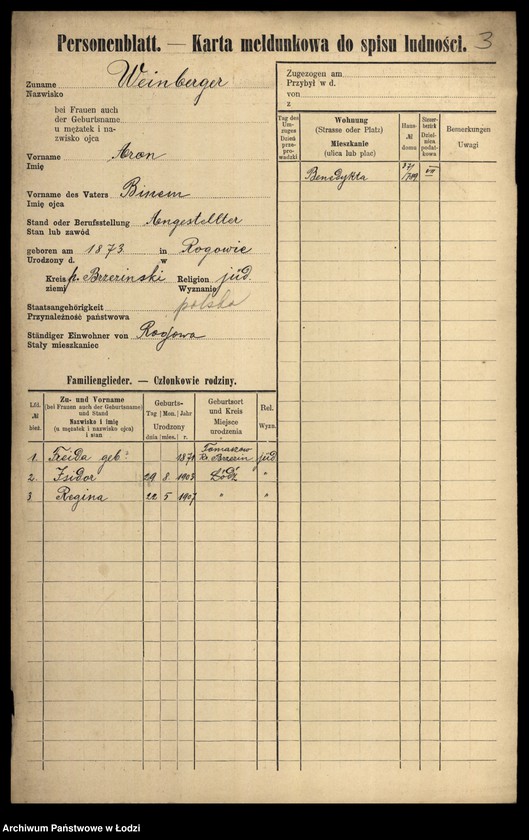 Personenblatt. — Karta meldunkowa do spisu ludności. 3
Zuname Weinberger
Nazwisko
bei Frauen auch
der Geburtsname
u mężatek i na-
zwisko ojca
Vorname Aron
Imię
Vorname des Vaters Binem
Imię ojca
Stand oder Berufsstellung Angestellter
Stan lub zawód
geboren am 1873. in Rogowie
Urodzony d. w
Kreis p. Brzezinski Religion jüd.
ziemi Wyznanie
Staatsangehörigkeit polska
Przynależność państwowa
Ständiger Einwohner von Rogowa
Stały mieszkaniec
Zugezogen am
Przybył w d.
von
z
Tag des Um-zuges Dzień prze-prowadzki
Wohnung
(Strasse oder Platz)
Mieszkanie
(ulica lub plac)
Haus-№ domu
Steuer-bezirk Dziel-nica podat-kowa
Bemerkungen
Uwagi
Benedykta VII
Familienglieder. — Członkowie rodziny.
Lfd. № bież.
Zu- und Vorname
(bei Frauen auch der Geburtsname)
und Stand
Nazwisko i imię
(u mężatek i nazwisko ojca)
i stan
Geburts-
Tag Mon. Jahr
Urodzony
dnia mies. r.
Geburtsort
und Kreis
Miejsce
urodzenia
Rel.
Wyzn.
1. Freida geb. Tomaszów Kr. Brzezin jüd
2. Isidor 29 8 Łódź "
3 Regina 22 5 1907 " "
Archiwum Państwowe w Łodzi